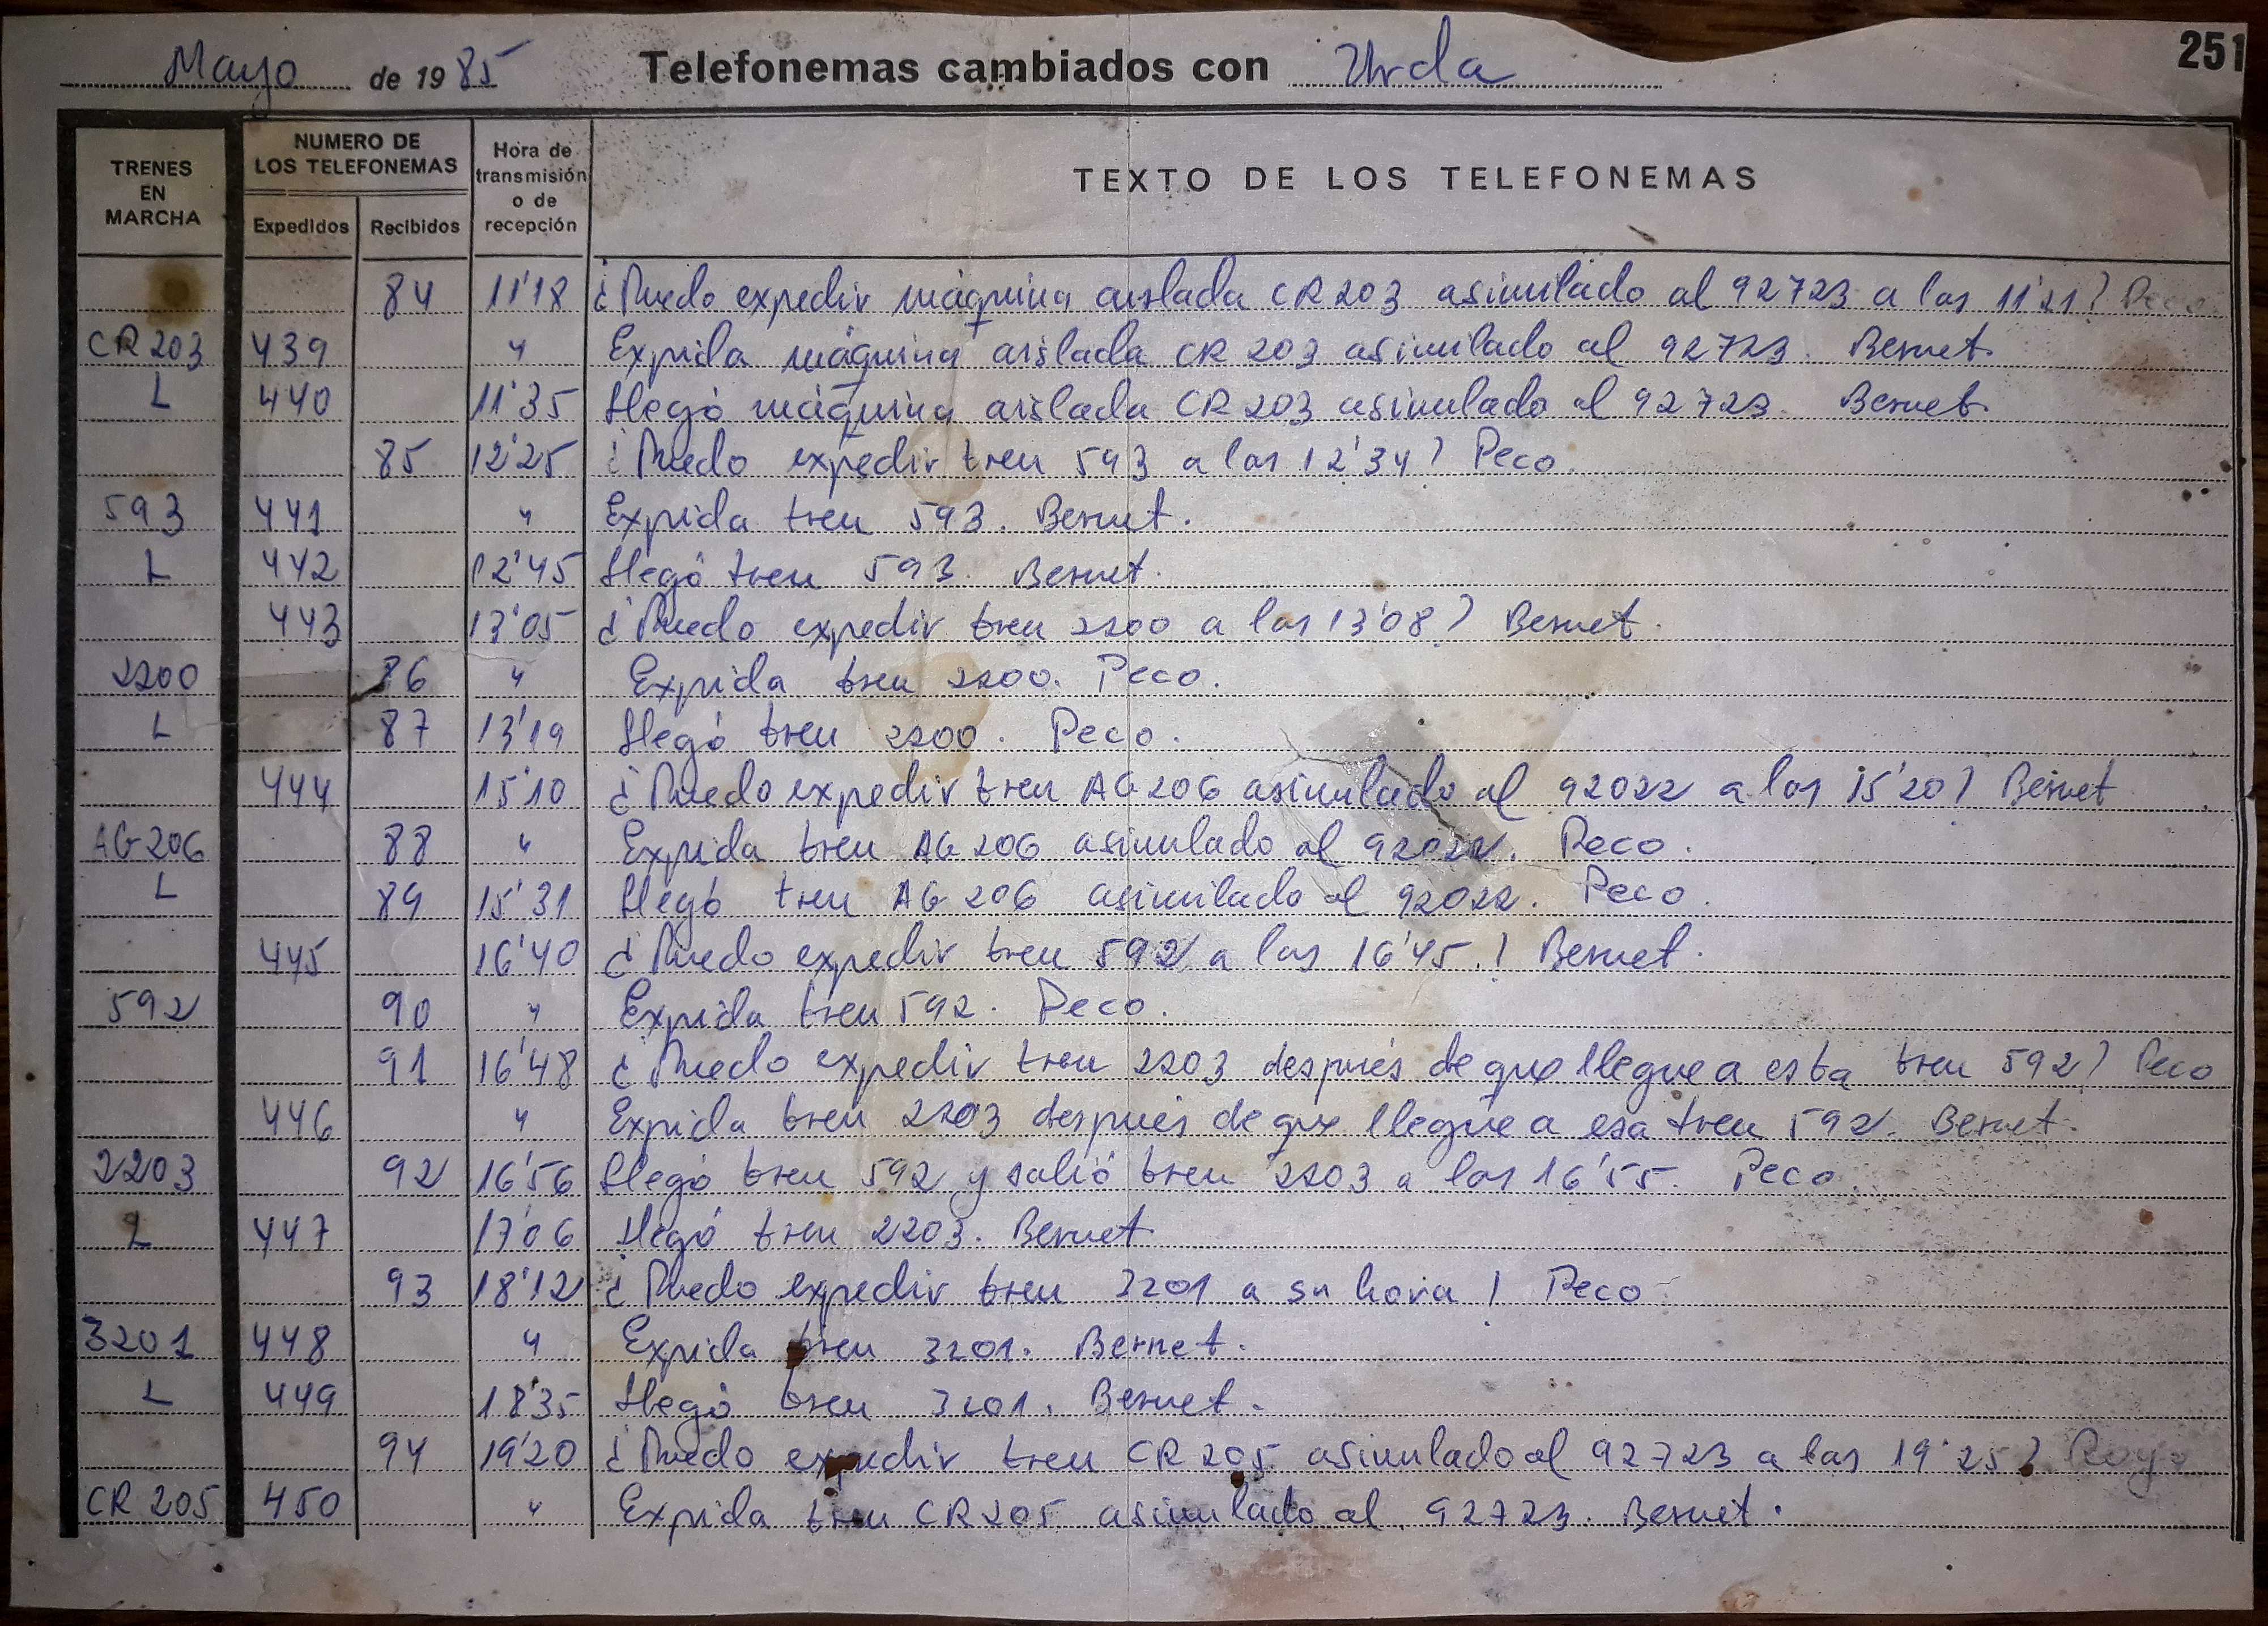 Mayo de 1985 Telefonemas cambiados con Urda 251
TRENES EN MARCHA
NUMERO DE LOS TELEFONEMAS
Expedidos Recibidos
Hora de transmisión o de recepción
TEXTO DE LOS TELEFONEMAS
84 11'18 ¿Puedo expedir máquina aislada CR 203 asimilado al 92723 a las 11'21? Peco
CR 203 439 " Expida máquina aislada CR 203 asimilado al 92723. Bernet
L 440 11'35 Llegó máquina aislada CR 203 asimulado al 92723. Bernet
85 12'25 ¿Puedo expedir tren 593 a las 12'34? Peco.
593 441 " Expida tren 593. Bernet.
L 442 12'45 Llegó tren 593. Bernet.
443 13'05 ¿Puedo expedir tren 2200 a las 13'08? Bernet.
2200 86 " Expida tren 2200. Peco.
L 87 13'19 Llegó tren 2200. Peco.
444 15'10 ¿Puedo expedir tren AG 206 asimilado al 92022 a las 15'20? Bernet
AG-206 88 " Expida tren AG 206 asimulado al 92022. Peco.
L 89 15'31 Llegó tren AG 206 asimilado al 92022. Peco.
445 16'40 ¿Puedo expedir tren 592 a las 16'45.? Bernet.
592 90 " Expida tren 592. Peco.
91 16'48 ¿Puedo expedir tren 2203 después de que llegue a esta tren 592? Peco
446 " Expida tren 2203 después de que llegue a esa tren 592. Bernet.
2203 92 16'56 Llegó tren 592 y salió tren 2203 a las 16'55. Peco.
L 447 17'06 Llegó tren 2203. Bernet
93 18'12 ¿Puedo expedir tren 3201 a su hora? Peco
3201 448 " Expida tren 3201. Bernet.
L 449 18'35 Llegó tren 3201. Bernet.
94 19'20 ¿Puedo expedir tren CR 205 asimulado al 92723 a las 19'25?
CR 205 450 " Expida tren CR 205 asimulado al 92723. Bernet.